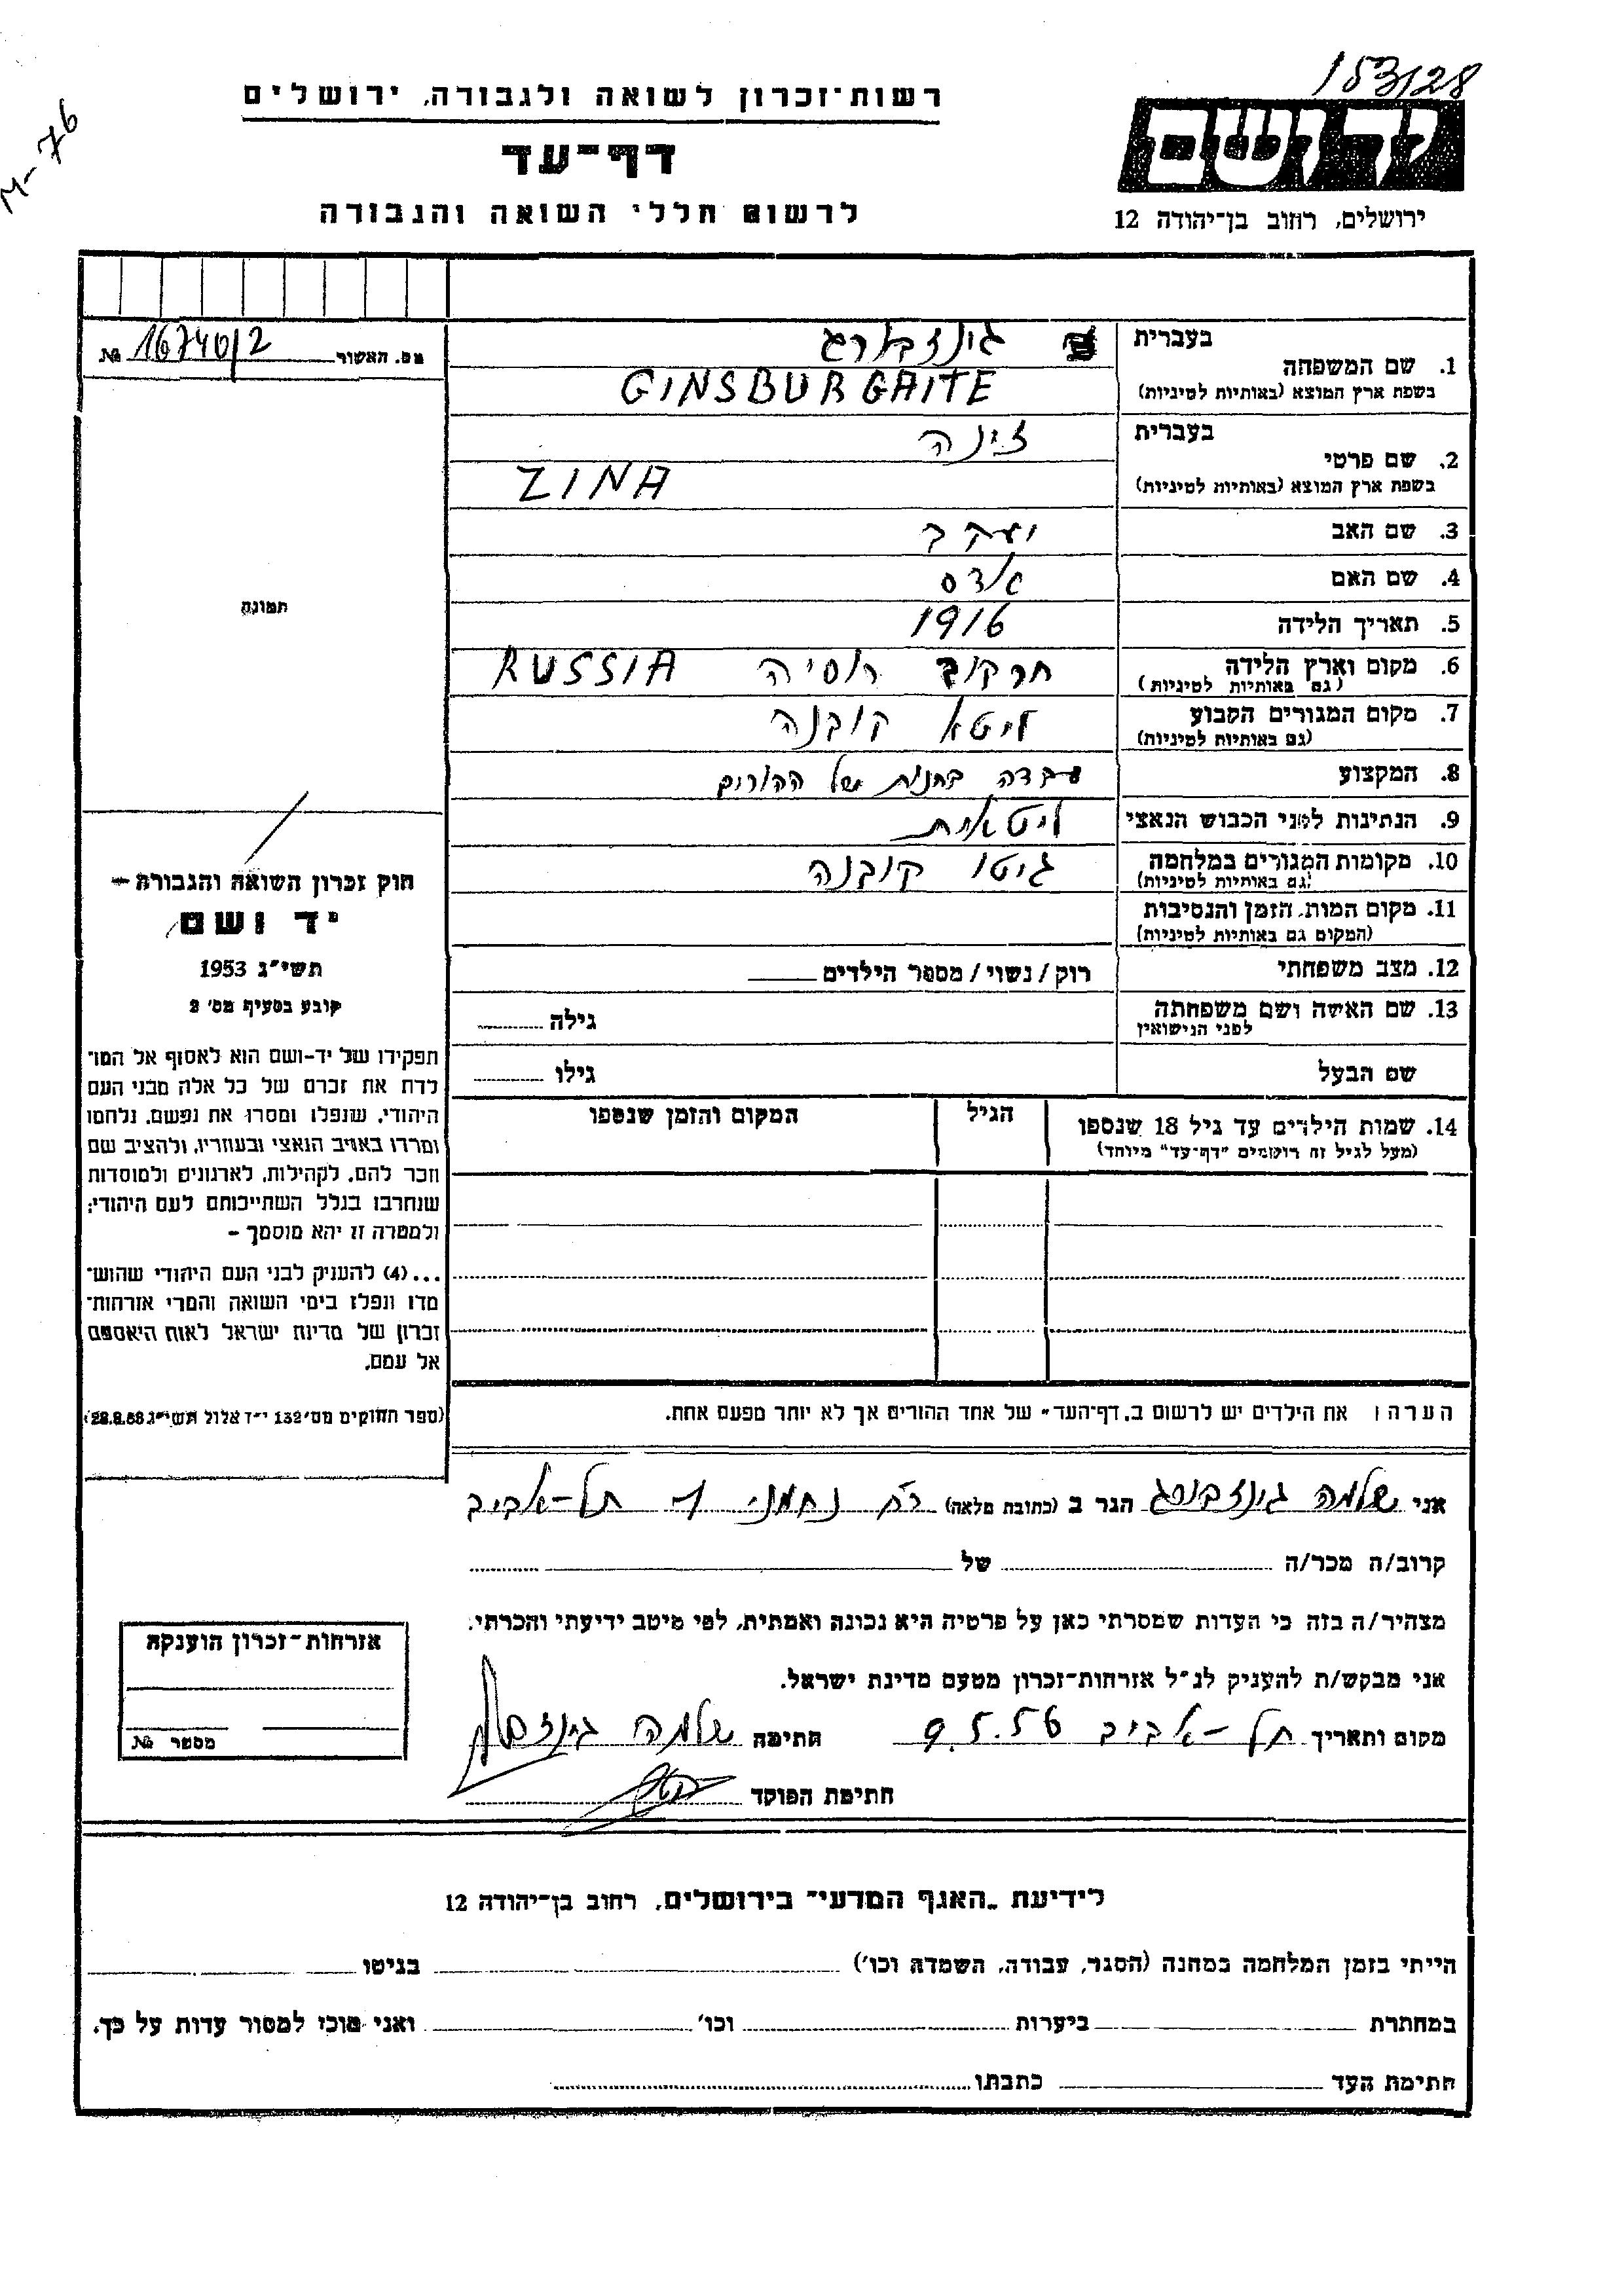 153128
M-76
רשות-זכרון לשואה ולגבורה, ירושלים
יד ושם
דף-עד
לרשום חללי השואה והגבורה
ירושלים, רחוב בן-יהודה 12
מס. האשור 16740/2 №
בעברית גינזבורג
1. שם המשפחה
בשפת ארץ המוצא (באותיות לטיניות) GINSBURGAITE
בעברית זינה
2. שם פרטי
בשפת ארץ המוצא (באותיות לטיניות) ZINA
3. שם האב יעקב
4. שם האם
5. תאריך הלידה 1916
6. מקום וארץ הלידה חרקוב רוסיה RUSSIA
(גם באותיות לטיניות)
7. מקום המגורים הקבוע ליטא קובנה
(גם באותיות לטיניות)
8. המקצוע עבדה בחנות של ההורים
9. הנתינות לפני הכבוש הנאצי ליטאית
10. מקומות המגורים במלחמה גיטו קובנה
(גם באותיות לטיניות)
11. מקום המות, הזמן והנסיבות
(המקום גם באותיות לטיניות)
12. מצב משפחתי רוק/נשוי/מספר הילדים
13. שם האשה ושם משפחתה גילה
לפני הנישואין
שם הבעל גילו
14. שמות הילדים עד גיל 18 שנספו הגיל המקום והזמן שנספו
(מעל לגיל זה רושמים "דף-עד" מיוחד)
תמונה
חוק זכרון השואה והגבורה –
יד ושם
תשי"ג 1953
קובע בסעיף מס' 2
תפקידו של יד-ושם הוא לאסוף אל המו־
לדת את זכרם של כל אלה מבני העם
היהודי, שנפלו ומסרו את נפשם, נלחמו
ומרדו באויב הנאצי ובעוזריו, ולהציב שם
וזכר להם, לקהילות, לארגונים ולמוסדות
שנחרבו בגלל השתייכותם לעם היהודי;
ולמטרה זו יהא מוסמך –
...(4) להעניק לבני העם היהודי שהוש־
מדו ונפלו בימי השואה והמרי אזרחות־
זכרון של מדינת ישראל לאות היאספם
אל עמם.
(ספר החוקים מס' 132 י"ז אלול תשי"ג 28.8.53)
הערה: את הילדים יש לרשום ב„דף-העד" של אחד ההורים אך לא יותר מפעם אחת.
אני שלמה גינזבורג הגר ב (כתובת מלאה) רח נחמני תל-אביב
קרוב/ה מכר/ה של
מצהיר/ה בזה כי העדות שמסרתי כאן על פרטיה היא נכונה ואמתית, לפי מיטב ידיעתי והכרתי.
אני מבקש/ת להעניק לנ"ל אזרחות-זכרון מטעם מדינת ישראל.
מקום ותאריך תל-אביב 9.5.56 חתימה שלמה גינזבורג
חתימת הפוקד
אזרחות-זכרון הוענקה
מספר №
לידיעת „האגף המדעי" בירושלים, רחוב בן-יהודה 12
הייתי בזמן המלחמה במחנה (הסגר, עבודה, השמדה וכו') בגיטו
במחתרת ביערות וכו' ואני מוכן למסור עדות על כך.
חתימת העד כתבתו